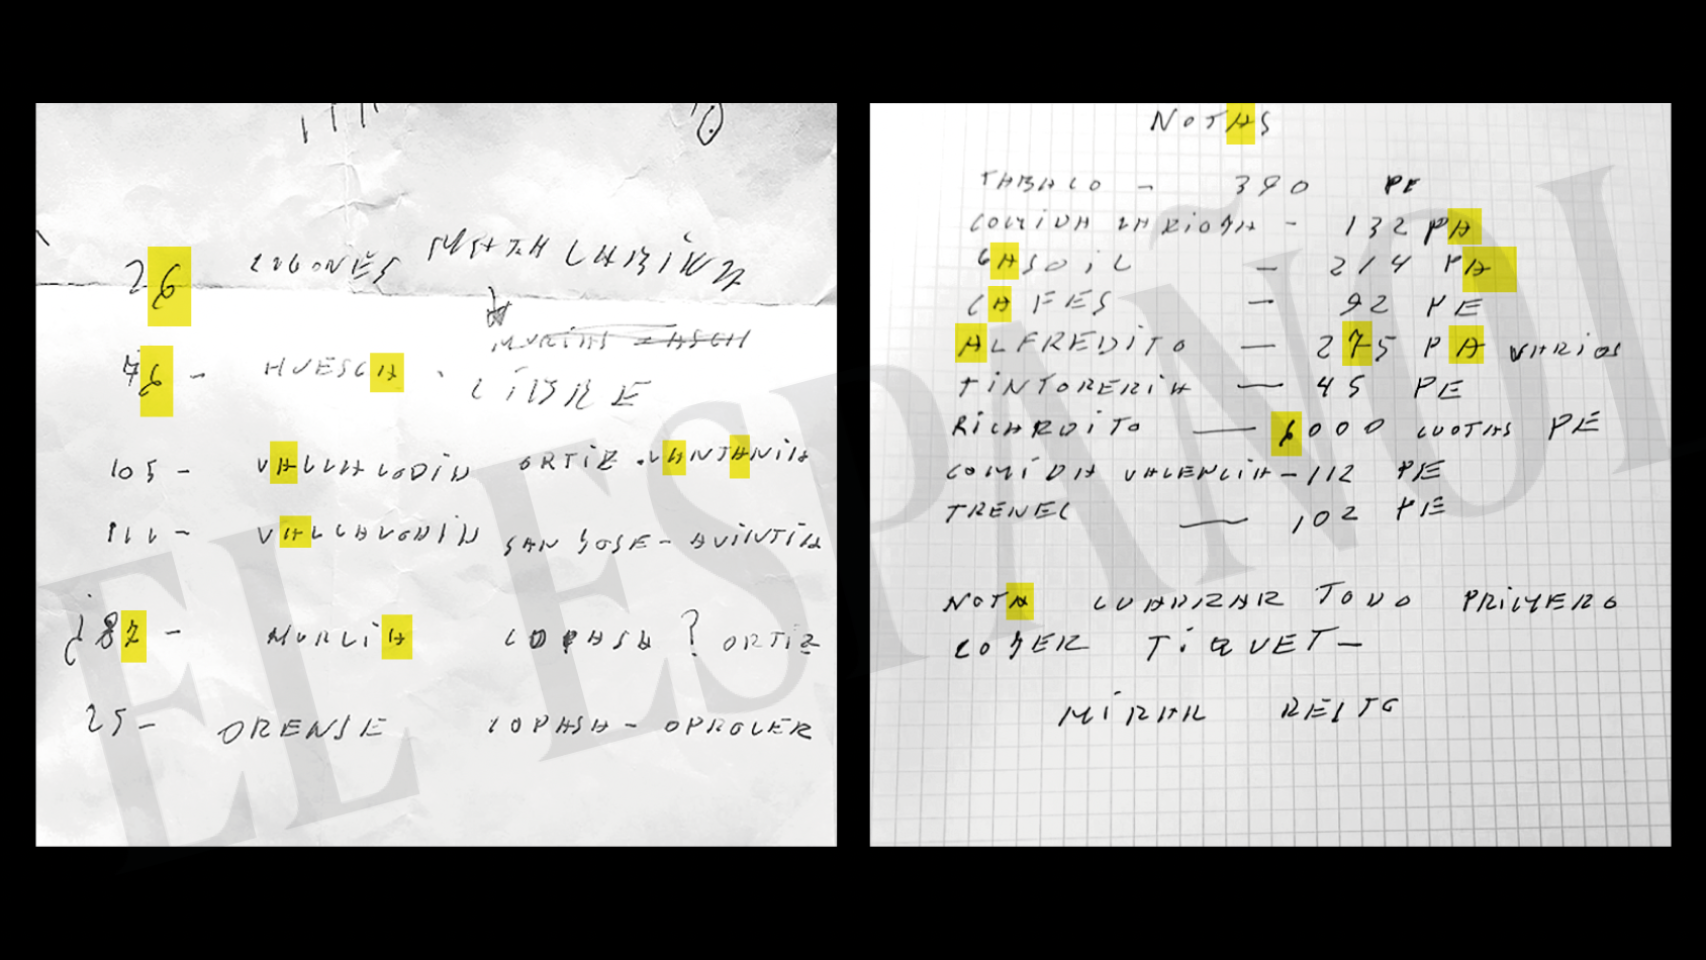 26 LUGONÉS MATALABLINA
MURIAS LASCH
76 - HUESCA . LIBRE
105 - VALLALODID ORTIZ . VANTANILLA
111 - VALLAVODID SAN JOSE - AUINTIA
¿87 - MURLIA COPASA ? ORTIZ
25 - ORENSE COPASA - OPROLER
NOTAS
TABALO - 390 PE
COMIDA ZARIOSA - 132 PA
GASOIL - 214 PA
CAFES - 92 PE
ALFREDITO - 275 PA VARIOS
TINTORERIA - 45 PE
RICARDITO - 6000 CUOTAS PE
COMIDA VALENCIA - 112 PE
TRENEC - 102 PE
NOTA CUADRAR TODO PRIMERO
COJER TIQUET -
MIRAR RESTO
EL ESPAÑOL